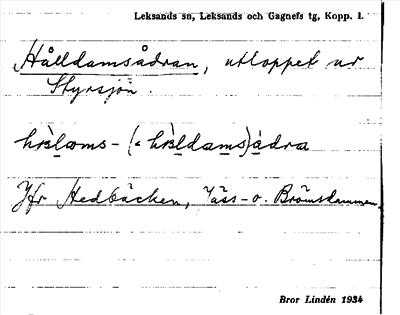 Leksands sn, Leksands och Gagnefs tg, Kopp. l.
Hålldamsådran, utloppet ur
Styrsjön.
Jfr Hedbäcken, Väss- o. Brömsdammen.
Bror Lindén 1934